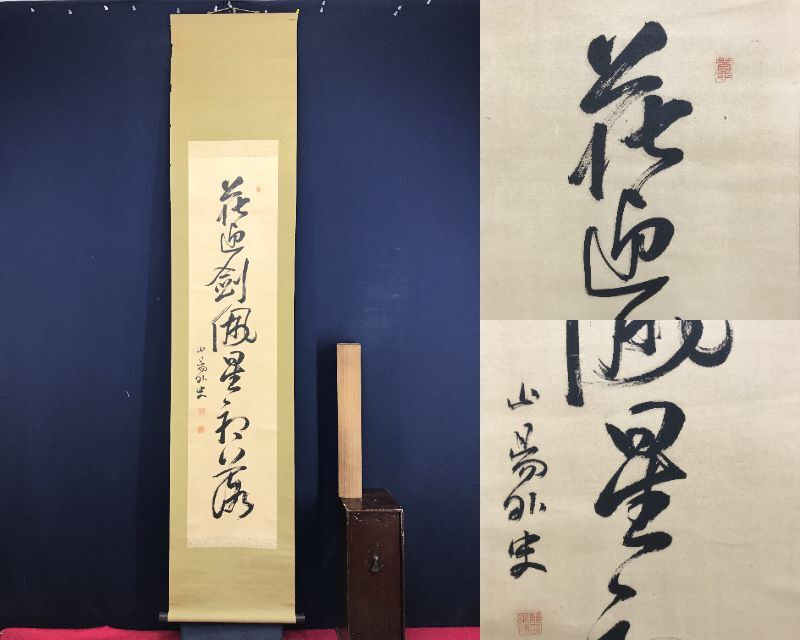 花迎剣佩星初落
山陽外史